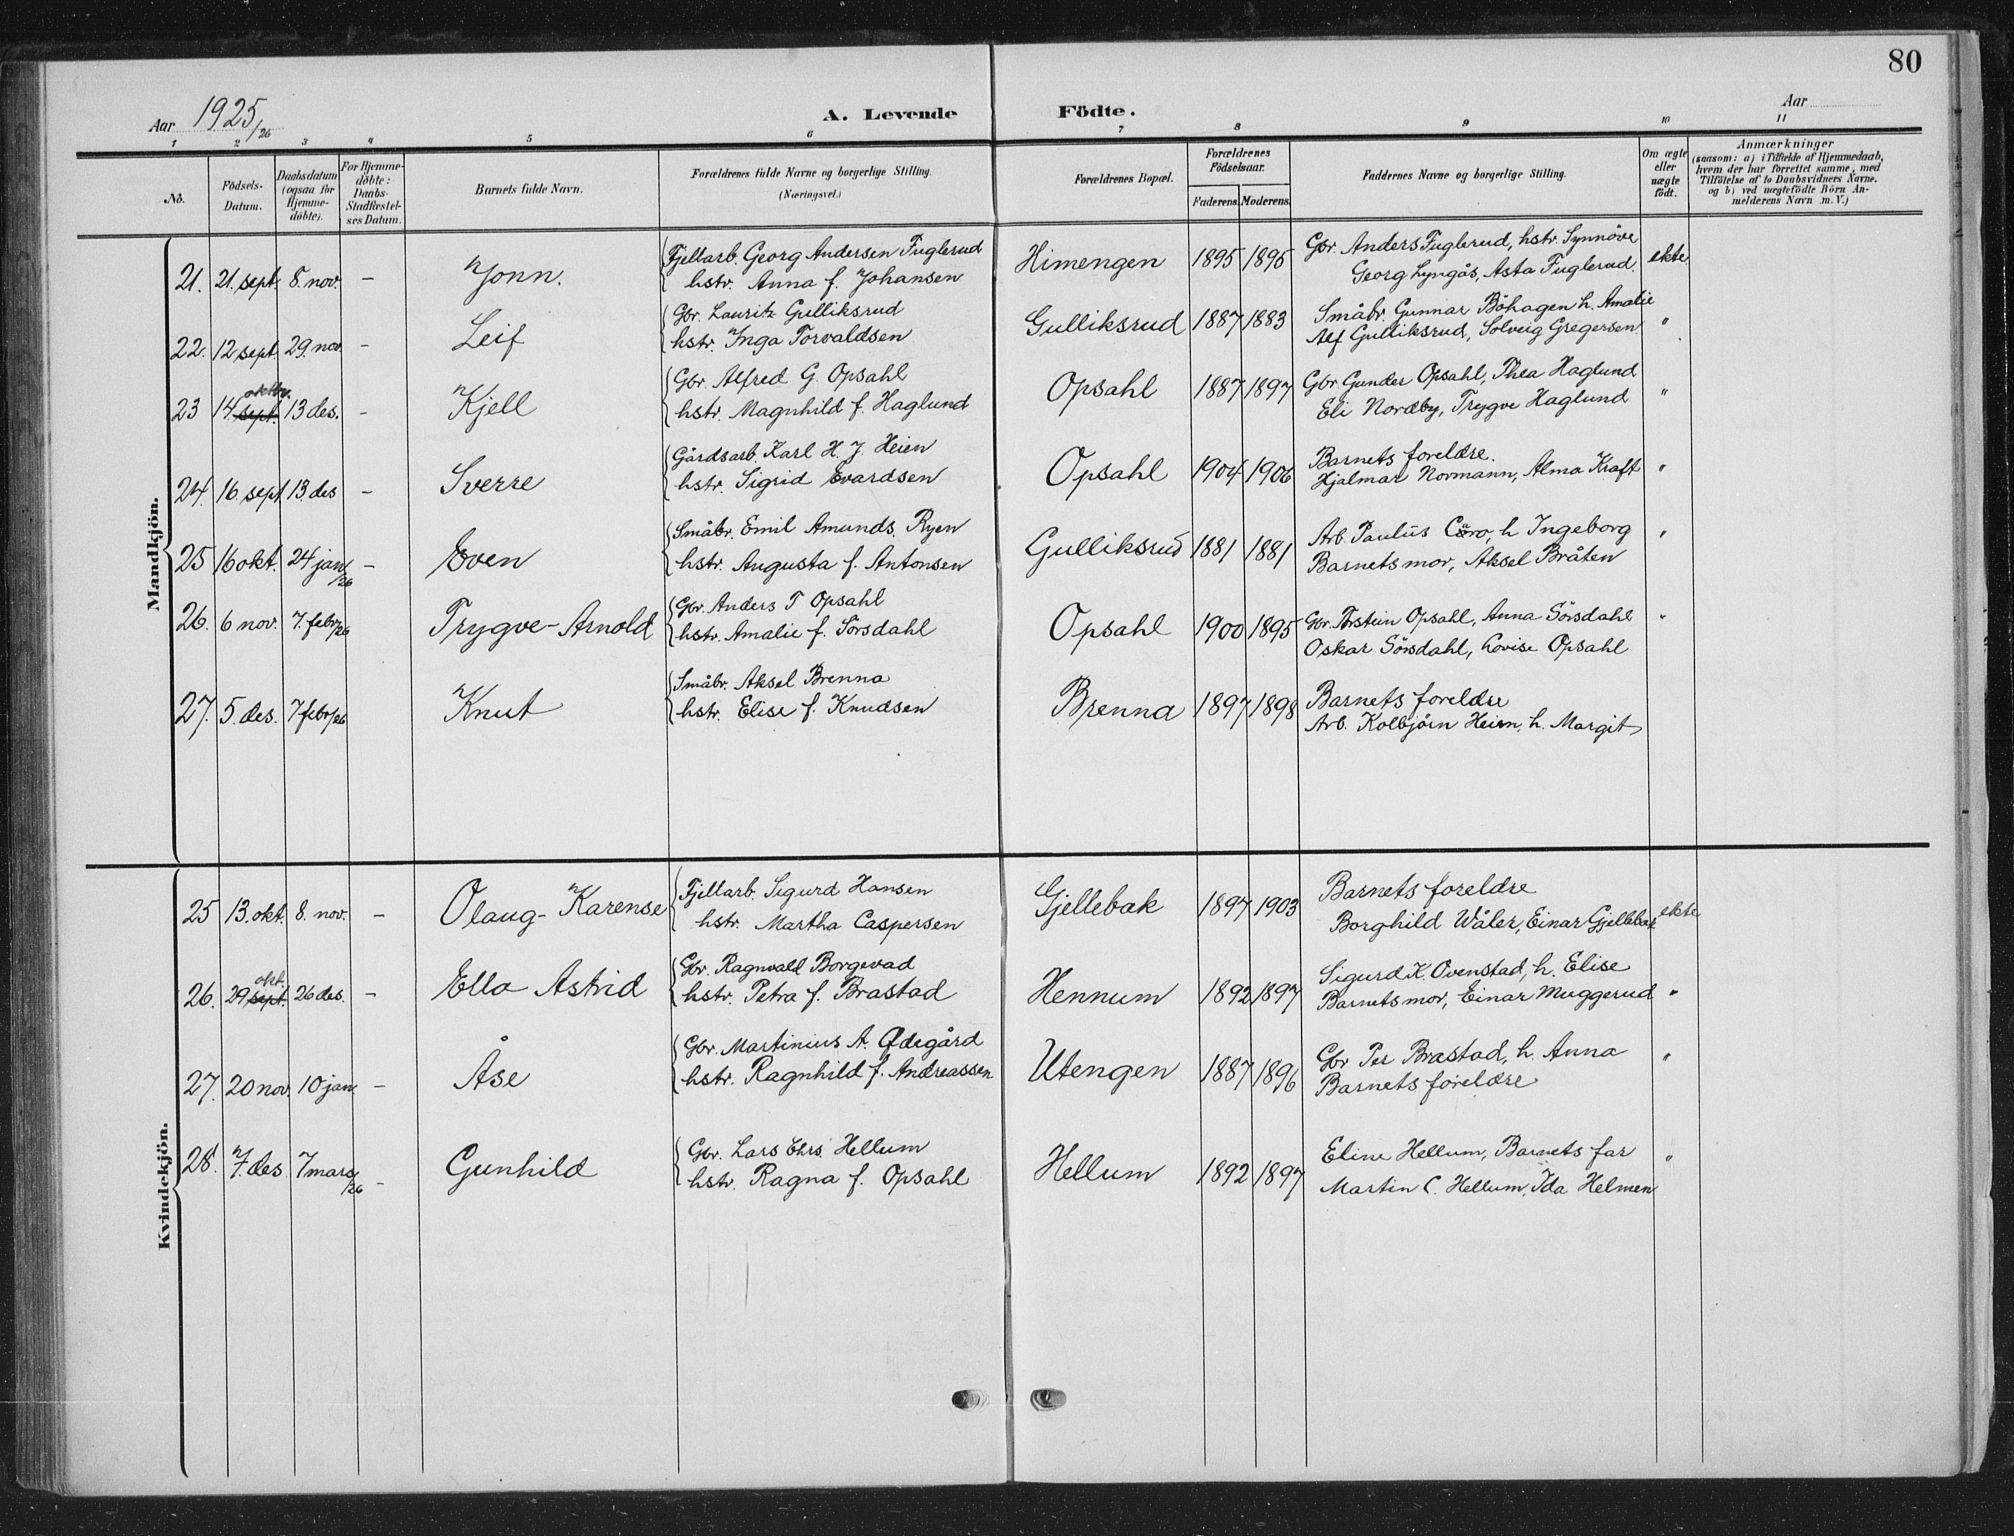 80
Aar 1925/26
A. Levende Födte.
Aar
1 2 3 4 5 6 7 8 9 10 11
No.
Födsels-Datum.
Daabsdatum (ogsaa for Hjemme-döbte).
For Hjemme-döbte: Daabs-Stadfæstel-ses Datum.
Barnets fulde Navn.
Forældrenes fulde Navne og borgerlige Stilling.
(Næringsvei.)
Forældrenes Bopæl.
Forældrenes Födselsaar.
Faderens. Moderens.
Faddernes Navne og borgerlige Stilling.
Om ægte eller uægte födt.
Anmærkninger
(saasom: a) i Tilfælde af Hjemmedaab,
hvem der har forrettet samme, med
Tilföielse af to Daabsvidners Navne,
og b) ved uægtefödte Börn An-
melderens Navn m. V.)
Mandkjön.
21. 21. sept. 8. nov. - Jonn. Fjellarb. Georg Andersen Fuglerud Himengen 1895 1895 Gbr. Anders Fuglerud, hstr. Synnöve ekte
hstr. Anna f. Johansen Georg Lyngås, Asta Fuglerud.
22. 12 sept. 29. nov. - Leif Gbr. Lauritz Gulliksrud Gulliksrud 1887 1883 Småbr. Gunnar Böhagen h. Amalie "
hstr. Inga Torvaldsen Alf Gulliksrud, Solveig Gregersen
oktbr.
23 14. sept. 13 des. - Kjell Gbr. Alfred G. Opsahl Opsahl 1887 1897 Gbr Gunder Opsahl, Thea Haglund "
hstr. Magnhild f. Haglund Eli Nordby, Trygve Haglund
24. 16 sept 13. des - Sverre Gårdsarb. Karl H. J. Heien Opsahl 1904 1906 Barnets foreldre. "
hstr. Sigrid Evardsen Hjalmar Normann, Alma Kraft
25 16 okt. 24 jan/26 - Even Småbr. Emil Amunds. Ryen Gulliksrud 1881 1881 Arb. Paulus h Ingeborg "
hstr. Augusta f. Antonsen Barnets mor, Aksel Bråten
26. 6 nov. 7. febr/26 Trygve-Arnold Gbr. Anders T Opsahl Opsahl 1900 1895 Gbr. Torstein Opsahl, Anna Sörsdahl "
hstr. Amalie f. Sörsdahl Oskar Sörsdahl, Lovise Opsahl
27. 5. des. 7 febr/26 Knut Småbr. Aksel Brenna Brenna 1897 1898 Barnets foreldre
hstr. Elise f. Knudsen Arb. Kolbjörn Heien, h. Margit
Kvindekjön.
25 13. okt. 8. nov. - Olaug-Karense Fjellarb. Sigurd Hansen Gjellebak 1897 1903 Barnets foreldre ekte
hstr. Martha Caspersen Borghild Wåler, Einar Gjellebak
okt.
26. 29 sept. 26 des. - Ella Astrid Gbr. Ragnvald Borgevad Hennum 1892 1897 Sigurd K. Ovenstad, h. Elise "
hstr. Petra f. Brastad Barnets mor, Einar Muggerud
27. 20 nov. 10 jan. - Åse Gbr. Martinius A. Ødegård Utengen 1887 1896 Gbr Per Brastad, h. Anna "
hstr. Ragnhild f. Andreassen Barnets foreldre
28. 7. des 7 mars/26 - Gunhild Gbr. Lars Chrs. Hellum Hellum 1892 1897 Eline Hellum, Barnets far "
hstr. Ragna f. Opsahl Martin C. Hellum, Ida Helmen